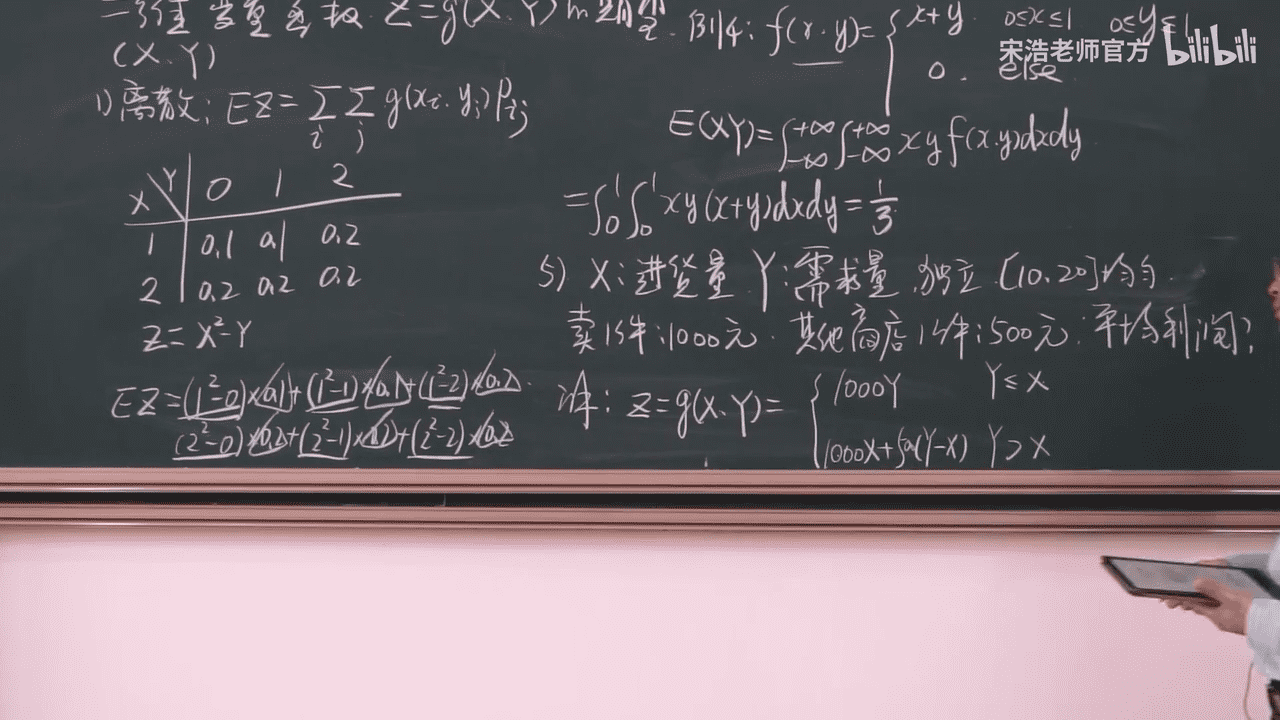 二维 Z=g(X,Y)
(X,Y)
1) 离散: EZ=∑∑ g(xᵢ,yⱼ)Pᵢⱼ
i j
X Y 0 1 2
1 0.1 0.1 0.2
2 0.2 0.2 0.2
Z=X²-Y
EZ=(1²-0)×0.1+(1²-1)×0.1+(1²-2)×0.2
(2²-0)×0.2+(2²-1)×0.2+(2²-2)×0.2
例4: f(x,y)={ x+y 0≤x≤1 0≤y≤1
0. else
宋浩老师官方 bilibili
E(XY)=∫₋∞⁺∞∫₋∞⁺∞ xyf(x,y)dxdy
=∫₀¹∫₀¹xy(x+y)dxdy=1/3
5) X:进货量 Y:需求量 独立 [10,20]均匀.
卖1件:1000元. 其他商店1件:500元. 平均利润?
解: Z=g(X,Y)={ 1000Y Y≤X
1000X+500(Y-X) Y>X